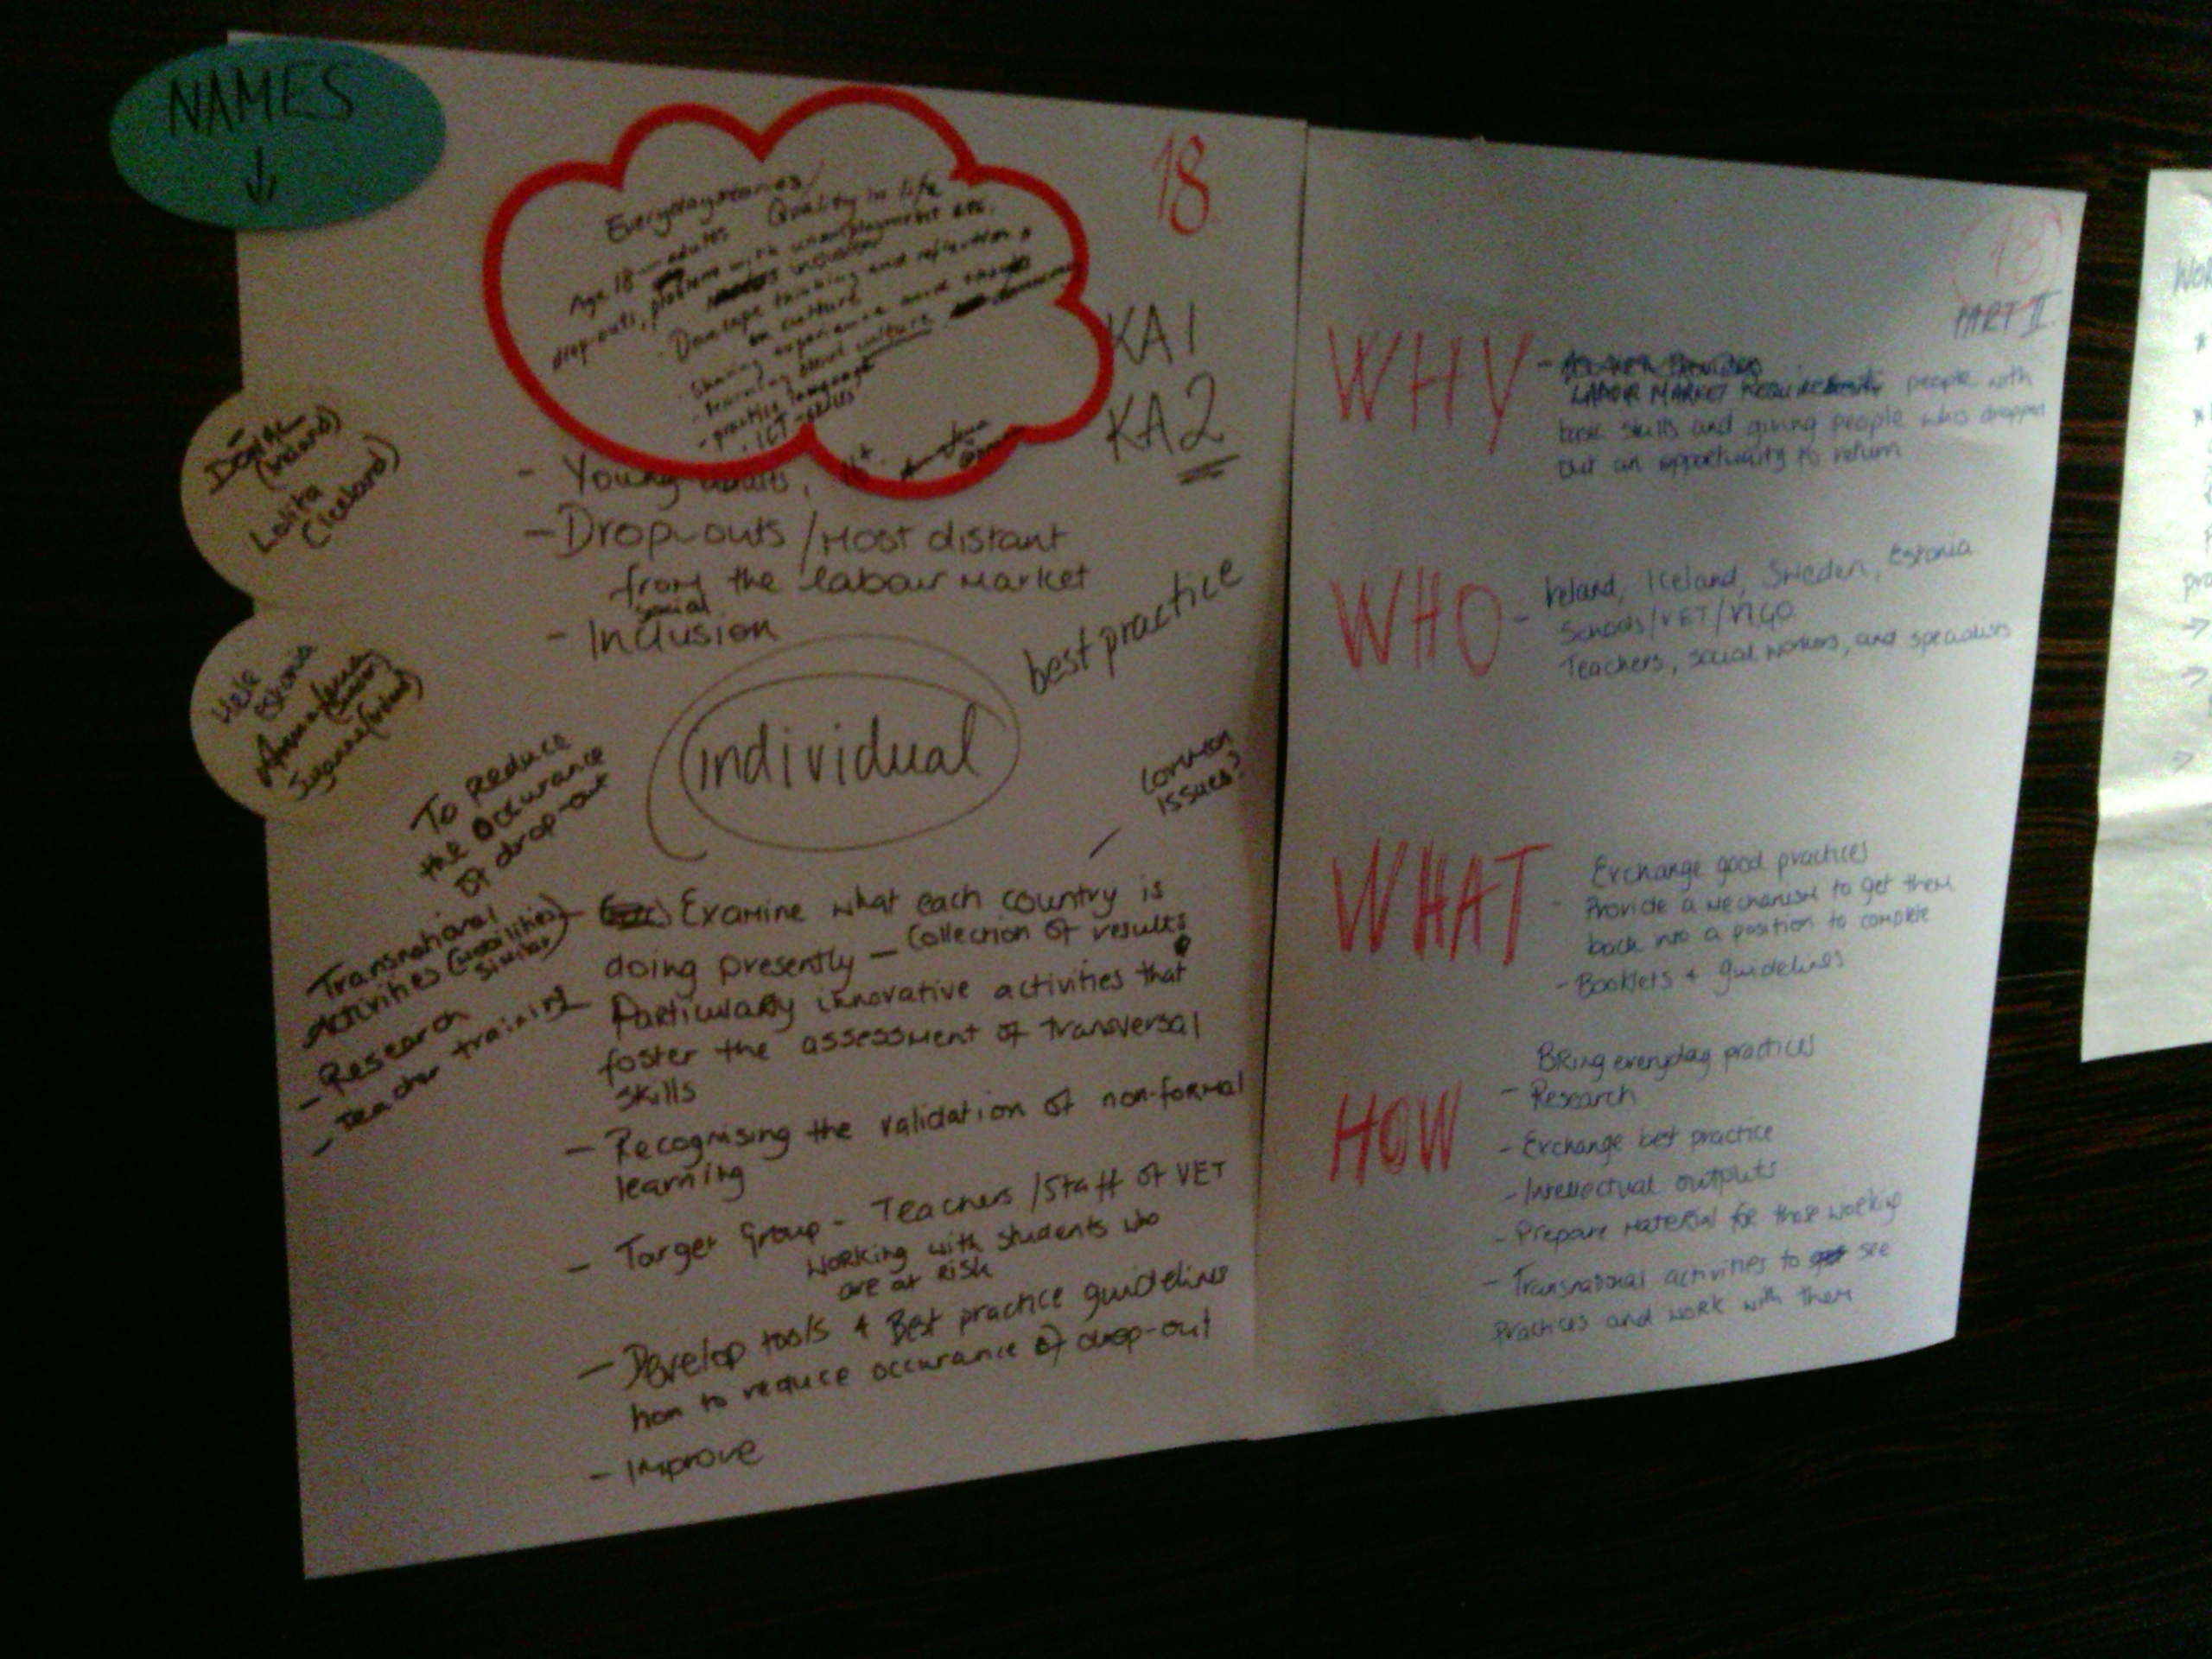 NAMES
↓
18
Everydaystories/
Quality in life
Age 18 — adults
drop-outs, problems with unemployment etc.
inclusion
- Develope thinking and reflection
on culture
- Sharing experience and
- learning about culture
- practice language
- ICT-skills
KA1
KA2
(Ireland)
Lolita
(Iceland)
Hele
Estonia
- Young adults,
- Drop-outs / Most distant
from the labour market
social
- Inclusion
best practice
individual
Common
issues?
To Reduce
the Occurance
Of drop-out
Transnational
Activities (mobilities)
similar
- Research
- teacher training
Examine what each country is
doing presently — Collection of results
Particularly innovative activities that
foster the assessment of transversal
skills
- Recognising the validation of non-formal
learning
- Target Group - Teachers / Staff of VET
Working with students who
are at Risk
- Develop tools + Best practice guideline
how to reduce occurance of drop-out
- Improve
18
PART II
WHY
LABOR MARKET people with
basic skills and giving people who dropped
out an opportunity to return
WHO
- Ireland, Iceland, Sweden, Estonia
Schools/VET/NGO
Teachers, social workers, and specialists
WHAT
Exchange good practices
- Provide a mechanism to get them
back into a position to complete
- Booklets + guidelines
HOW
BRing everyday practices
- Research
- Exchange best practice
- Intellectual outputs
- Prepare material for those working
- Transnational activities to see
practices and work with them